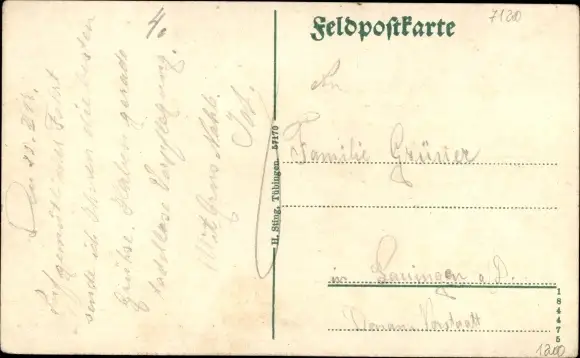 Feldpostkarte
7120
An
Familie Grüner
in Lauingen a. D.
Donau Vorstadt
H. Sting, Tübingen 57170
184475
1300
4.
Den
Auf gemütlicher Fahrt
sende ich Ihnen die besten
Grüße. Haben gerade
tadellose Verpflegung.
Mit